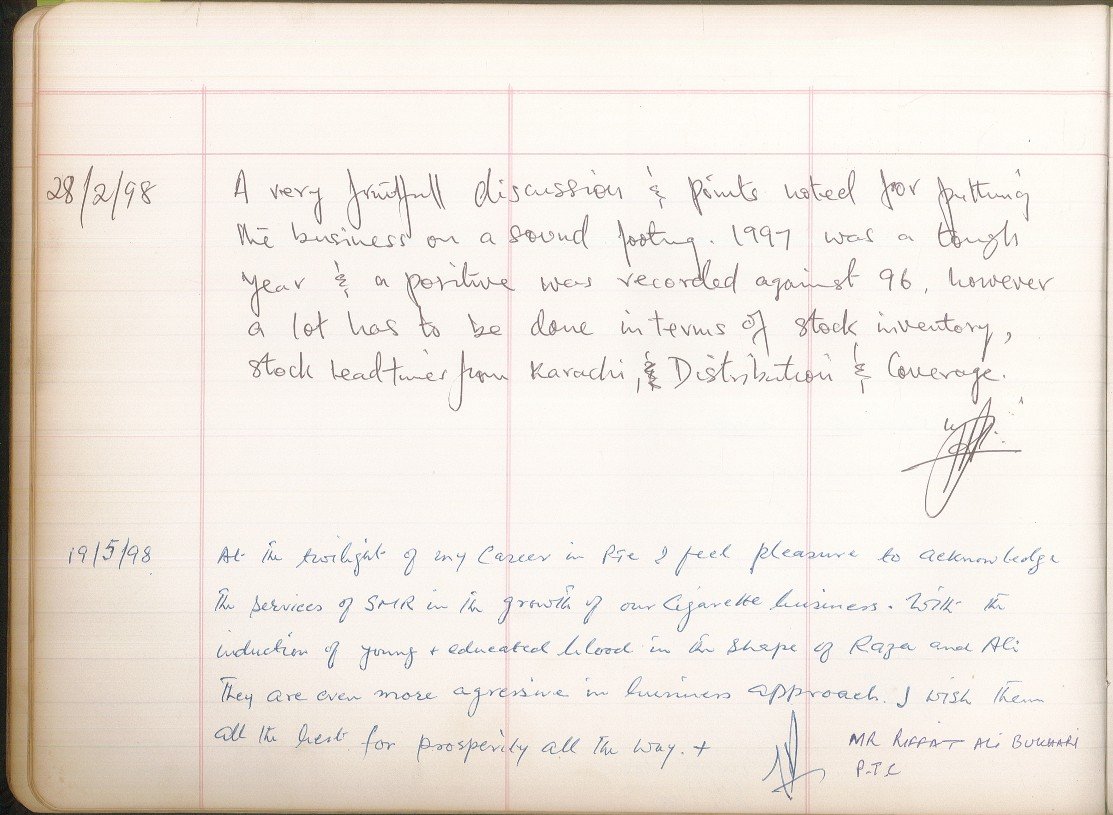 28/2/98 A very fruitfull discussion & points noted for putting
the business on a sound footing. 1997 was a tough
year & a positive was recorded against 96, however
a lot has to be done in terms of stock inventory,
stock leadtimes from Karachi, & Distribution & Coverage.
19/5/98 At the twilight of my Career in PTC I feel pleasure to acknowledge
the services of SMR in the growth of our Cigarette business. With the
induction of young + educated blood in the shape of Raza and Ali
They are even more agressive in business approach. I wish them
all the best for prosperity all the way. +
MR RIFFAT ALI BUKHARI
P.T.C